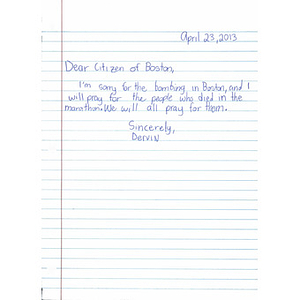 April 23, 2013
Dear Citizen of Boston,
I'm sorry for the bombing in Boston, and I
will pray for the people who died in the
marathon. We will all pray for them.
Sincerely,
Dervin